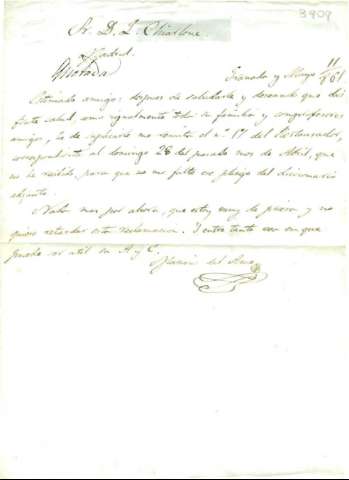 3909
Sr. D. L. Charlone.
Madrid.
Granada y Mayo 11/901
Estimado amigo: despues de saludarle y deseando que dis
frute salud, como igualmente toda su familia y comprofesores
amigos, he de suplicarle me remita el nº 17 del Restaurador,
correspondiente al domingo 28 del pasado mes de Abril, que
no he recibido, para que no me falte ese pliego del diccionario
adjunto.
Nada mas por ahora, que estoy muy de prisa y no
quiero retardar esta reclamacion. Y entre tanto vea en que
puede ser util su A. y C.
del Amo